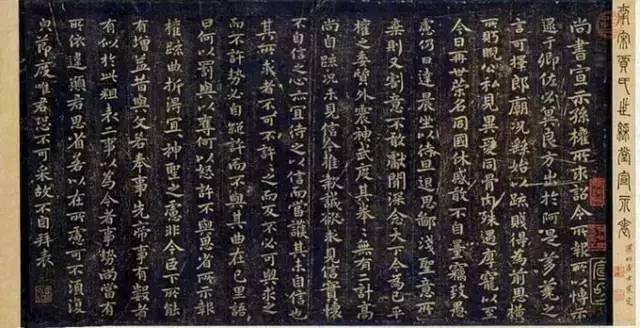 南宋賈氏世綵堂宣示表
尚書宣示孫權所求詔令所報所以博示
逮于卿佐必冀良方出於阿是芻蕘之
言可擇郎廟況繇始以疏賤得為前恩橫
所盼睨公私見異愛同骨肉殊遇厚寵以至
今日再世榮名同國休慼敢不自量竊致愚
慮仍日達晨坐以待旦退思鄙淺聖意所
棄則又割意不敢獻聞深念天下今為已平
權之委質外震神武度其拳無有二計高
尚自疏況未見信今推款誠欲求見信實懷
不自信之心亦宜待之以信而當護其未自信也
其所求者不可不許許之而反不必可與求之
而不許勢必自絕許而不與其曲在己里語
曰何以罰與以奪何以怒許不與思省所示報
權疏曲折得宜宜神聖之慮非今臣下所能
有增益昔與文若奉事先帝事有數者
有似於此粗表二事以為今者事勢尚當有
所依違願君思省若以在所慮可不須復
節度唯君恐不可采故不自拜表